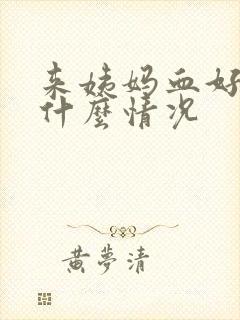 来姨妈血好
什麼情况
黄夢清